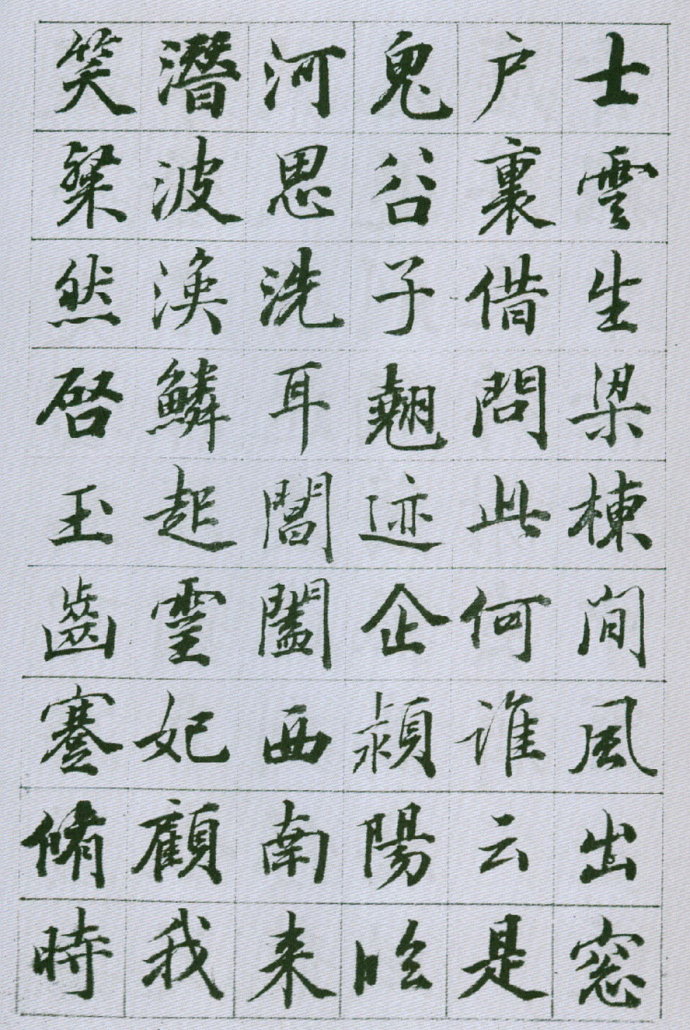 士雲生梁棟間風出窓
户裏借問此何誰云是
鬼谷子翹迹企潁陽臨
河思洗耳閶闔西南来
潛波渙鱗起靈妃顧我
笑粲然啓玉齒蹇脩時